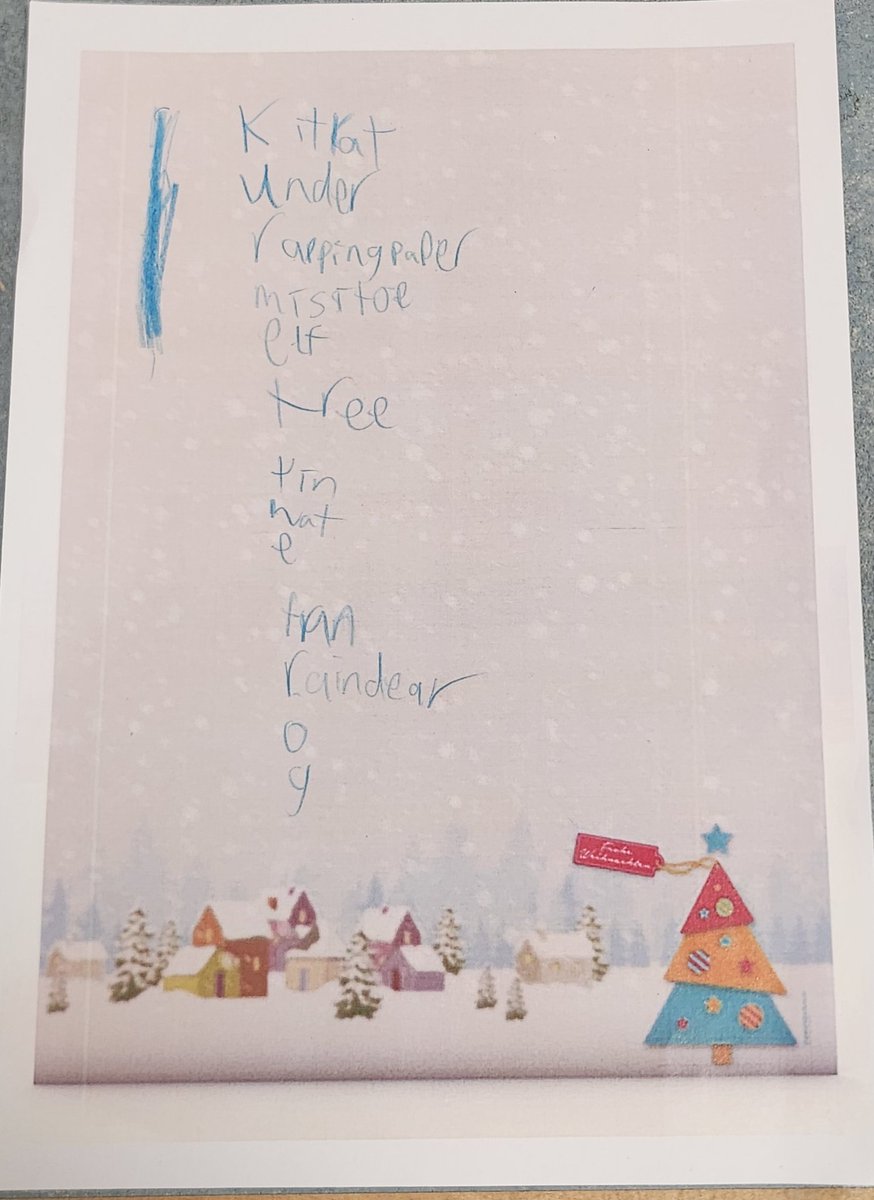 Kitkat
Under
rappingpaper
misitoe
elf
tree
tin
hat
e
tran
raindear
o
g
Frohe
Weihnachten